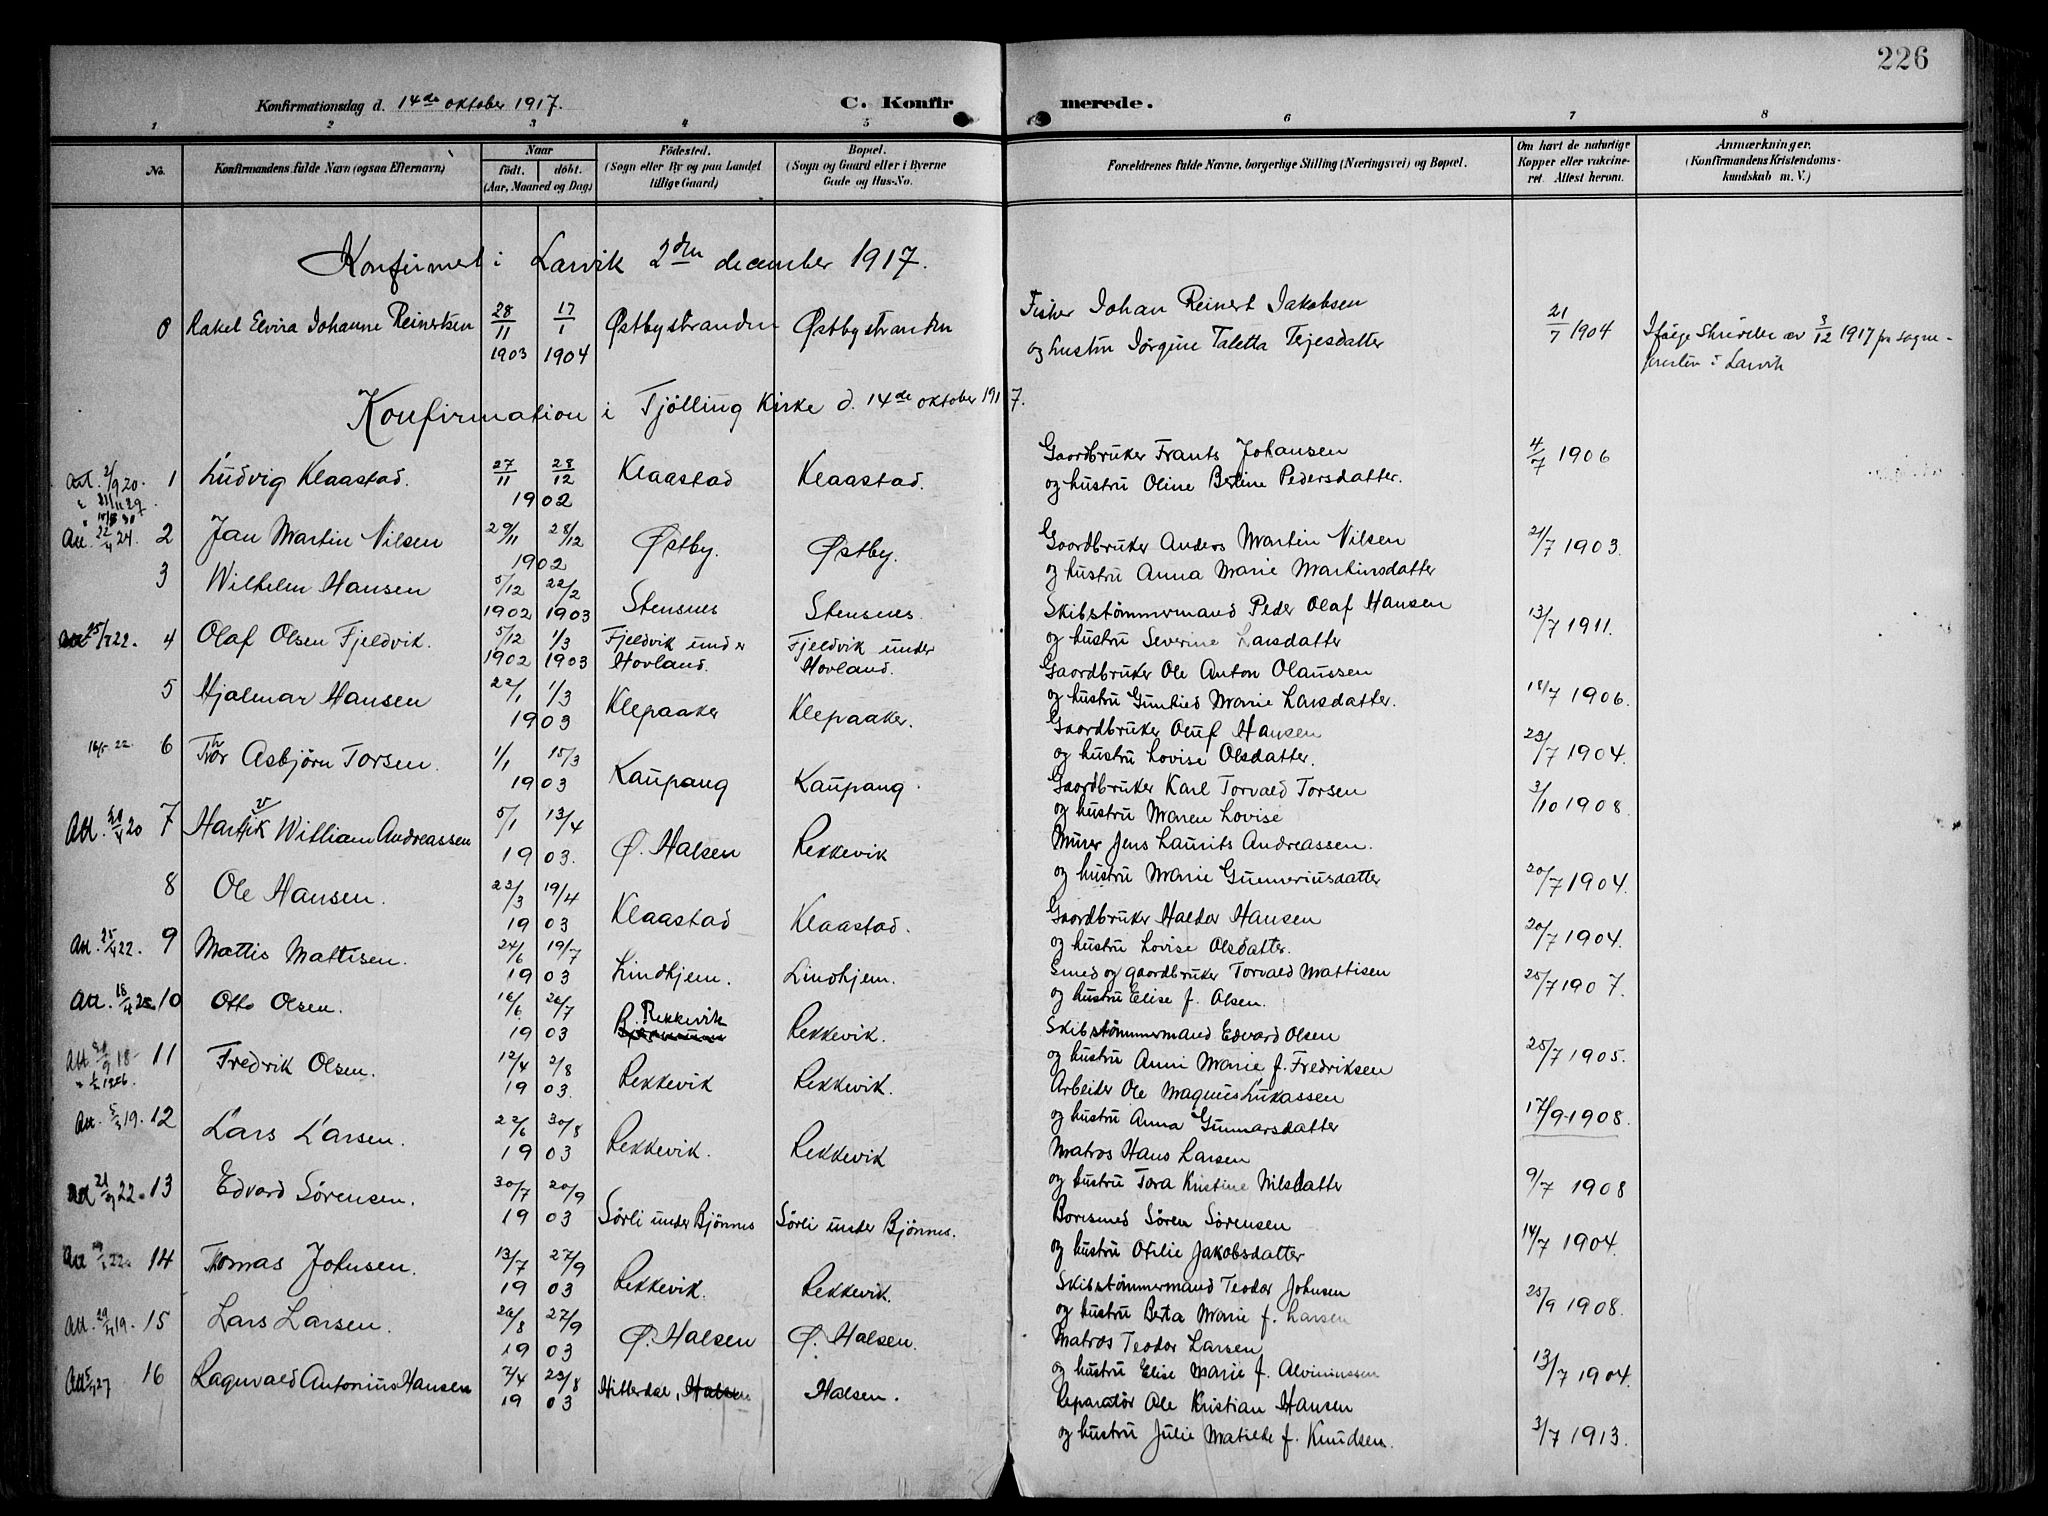 226
Konfirmationsdag d. 14de oktober 1917. C. Konfirmerede.
1 2 3 4 5 6 7 8
No. Konfirmandens fulde Navn (ogsaa Efternavn) Naar født. døbt. (Aar, Maaned og Dag) Fødested. (Sogn eller By og paa Landet tillige Gaard) Bopæl. (Sogn og Gaard eller i Byerne Gade og Hus-No. Forældrenes fulde Navne, borgerlige Stilling (Næringsvei) og Bopæl. Om havt de naturlige Kopper eller vakcineret. Attest herom. Anmærkninger. (Konfirmandens Kristendomskundskab m. V.)
Konfirmert i Larvik 2den december 1917.
0 Rakel Elvira Johanne Reinertsen 28/11 1903 17/1 1904 Østbystranden Østbystranden Fisker Johan Reinert Jakobsen 21/7 1904 Ifølge Skrivelse av 3/12 1917 fra sogne-
og hustru Jørgine Taletta Terjesdatter presten i Larvik
Konfirmation i Tjølling Kirke d. 14de oktober 1917.
Att. 2/9 20. 1 Ludvig Klaastad. 27/11 28/12 1902 Klaastad Klaastad. Gaardbruker Frants Johansen 4/7 1906
og hustru Oline Bertine Pedersdatter.
Att. 22/4 24. 2 Jan Martin Nilsen 29/11 28/12 1902 Østby. Østby. Gaardbruker Anders Martin Nilsen 21/7 1903.
og hustru Anna Marie Martinsdatter
3 Wilhelm Hansen 5/12 1902 22/2 1903 Stensnes Stensnes. Skibstømmermand Peder Olaf Hansen 13/7 1911.
og hustru Severine Larsdatter
22. 4 Olaf Olsen Fjeldvik. 5/12 1902 1/3 1903 Fjeldvik under Hovland. Fjeldvik under Hovland. Gaardbruker Ole Anton Olaussen 18/7 1906.
og hustru Gunhild Marie Larsdatter.
5 Hjalmar Hansen 22/1 1/3 1903 Klepaaker Klepaaker. Gaardbruker Oluf Hansen 23/7 1904.
og hustru Lovise Olsdatter.
16/5 22. 6 Thor Asbjørn Torsen. 1/1 15/3 1903 Kaupang Kaupang. Gaardbruker Karl Torvald Torsen 3/10 1908.
og hustru Maren Lovise
Att. 20 7 Hartvik William Andreassen 5/1 13/4 1903. Ø. Halsen Rekkevik Murer Jens Laurits Andreassen. 20/7 1904.
og hustru Marie Gunneriusdatter
8 Ole Hansen. 22/3 19/4 1903 Klaastad Klaastad. Gaardbruker Haldor Hansen 20/7 1904.
og hustru Lovise Olsdatter.
Att. 22. 9 Mattis Mattisen. 24/6 19/7 1903 Lindhjem. Lindhjem. Smed og gaardbruker Torvald Mattisen 25/7 1907.
og hustru Elise f. Olsen.
Att. 10 Otto Olsen. 16/6 26/7 1903 Rekkevik Rekkevik. Skibstømmermand Edvard Olsen 25/7 1905.
og hustru Anni Marie f. Fredriksen
Att. 18 11 Fredrik Olsen. 12/4 2/8 1903. Rekkevik Rekkevik. Arbeider Ole Magnus Lukassen 17/9 1908.
og hustru Anna Gunnarsdatter
Att. 5/3 19. 12 Lars Larsen. 22/6 30/8 1903 Rekkevik. Rekkevik Matros Hans Larsen 9/7 1908
og hustru Tora Kristine Nilsdatter
22. 13 Edvard Sørensen. 30/7 20/9 1903 Sørli under Bjønnes Sørli under Bjønnes. Børsmed Søren Sørensen 14/7 1904.
og hustru Otilie Jakobsdatter
Att 22. 14 Thomas Johnsen. 13/7 27/9 1903 Rekkevik. Rekkevik. Skibstømmermand Teodor Johnsen 25/9 1908.
og hustru Berta Marie f. Larsen
Att. 19. 15 Lars Larsen. 26/8 27/9 1903 Ø. Halsen Ø. Halsen. Matros Teodor Larsen 13/7 1904.
og hustru Elise Marie f. Alvinussen
Att 27 16 Ragnvald Antonius Hansen 7/4 23/8 1903 Hitterdal, Halsen Halsen. Reparatør Ole Kristian Hansen 3/7 1913.
og hustru Julie Matilde f. Knudsen.